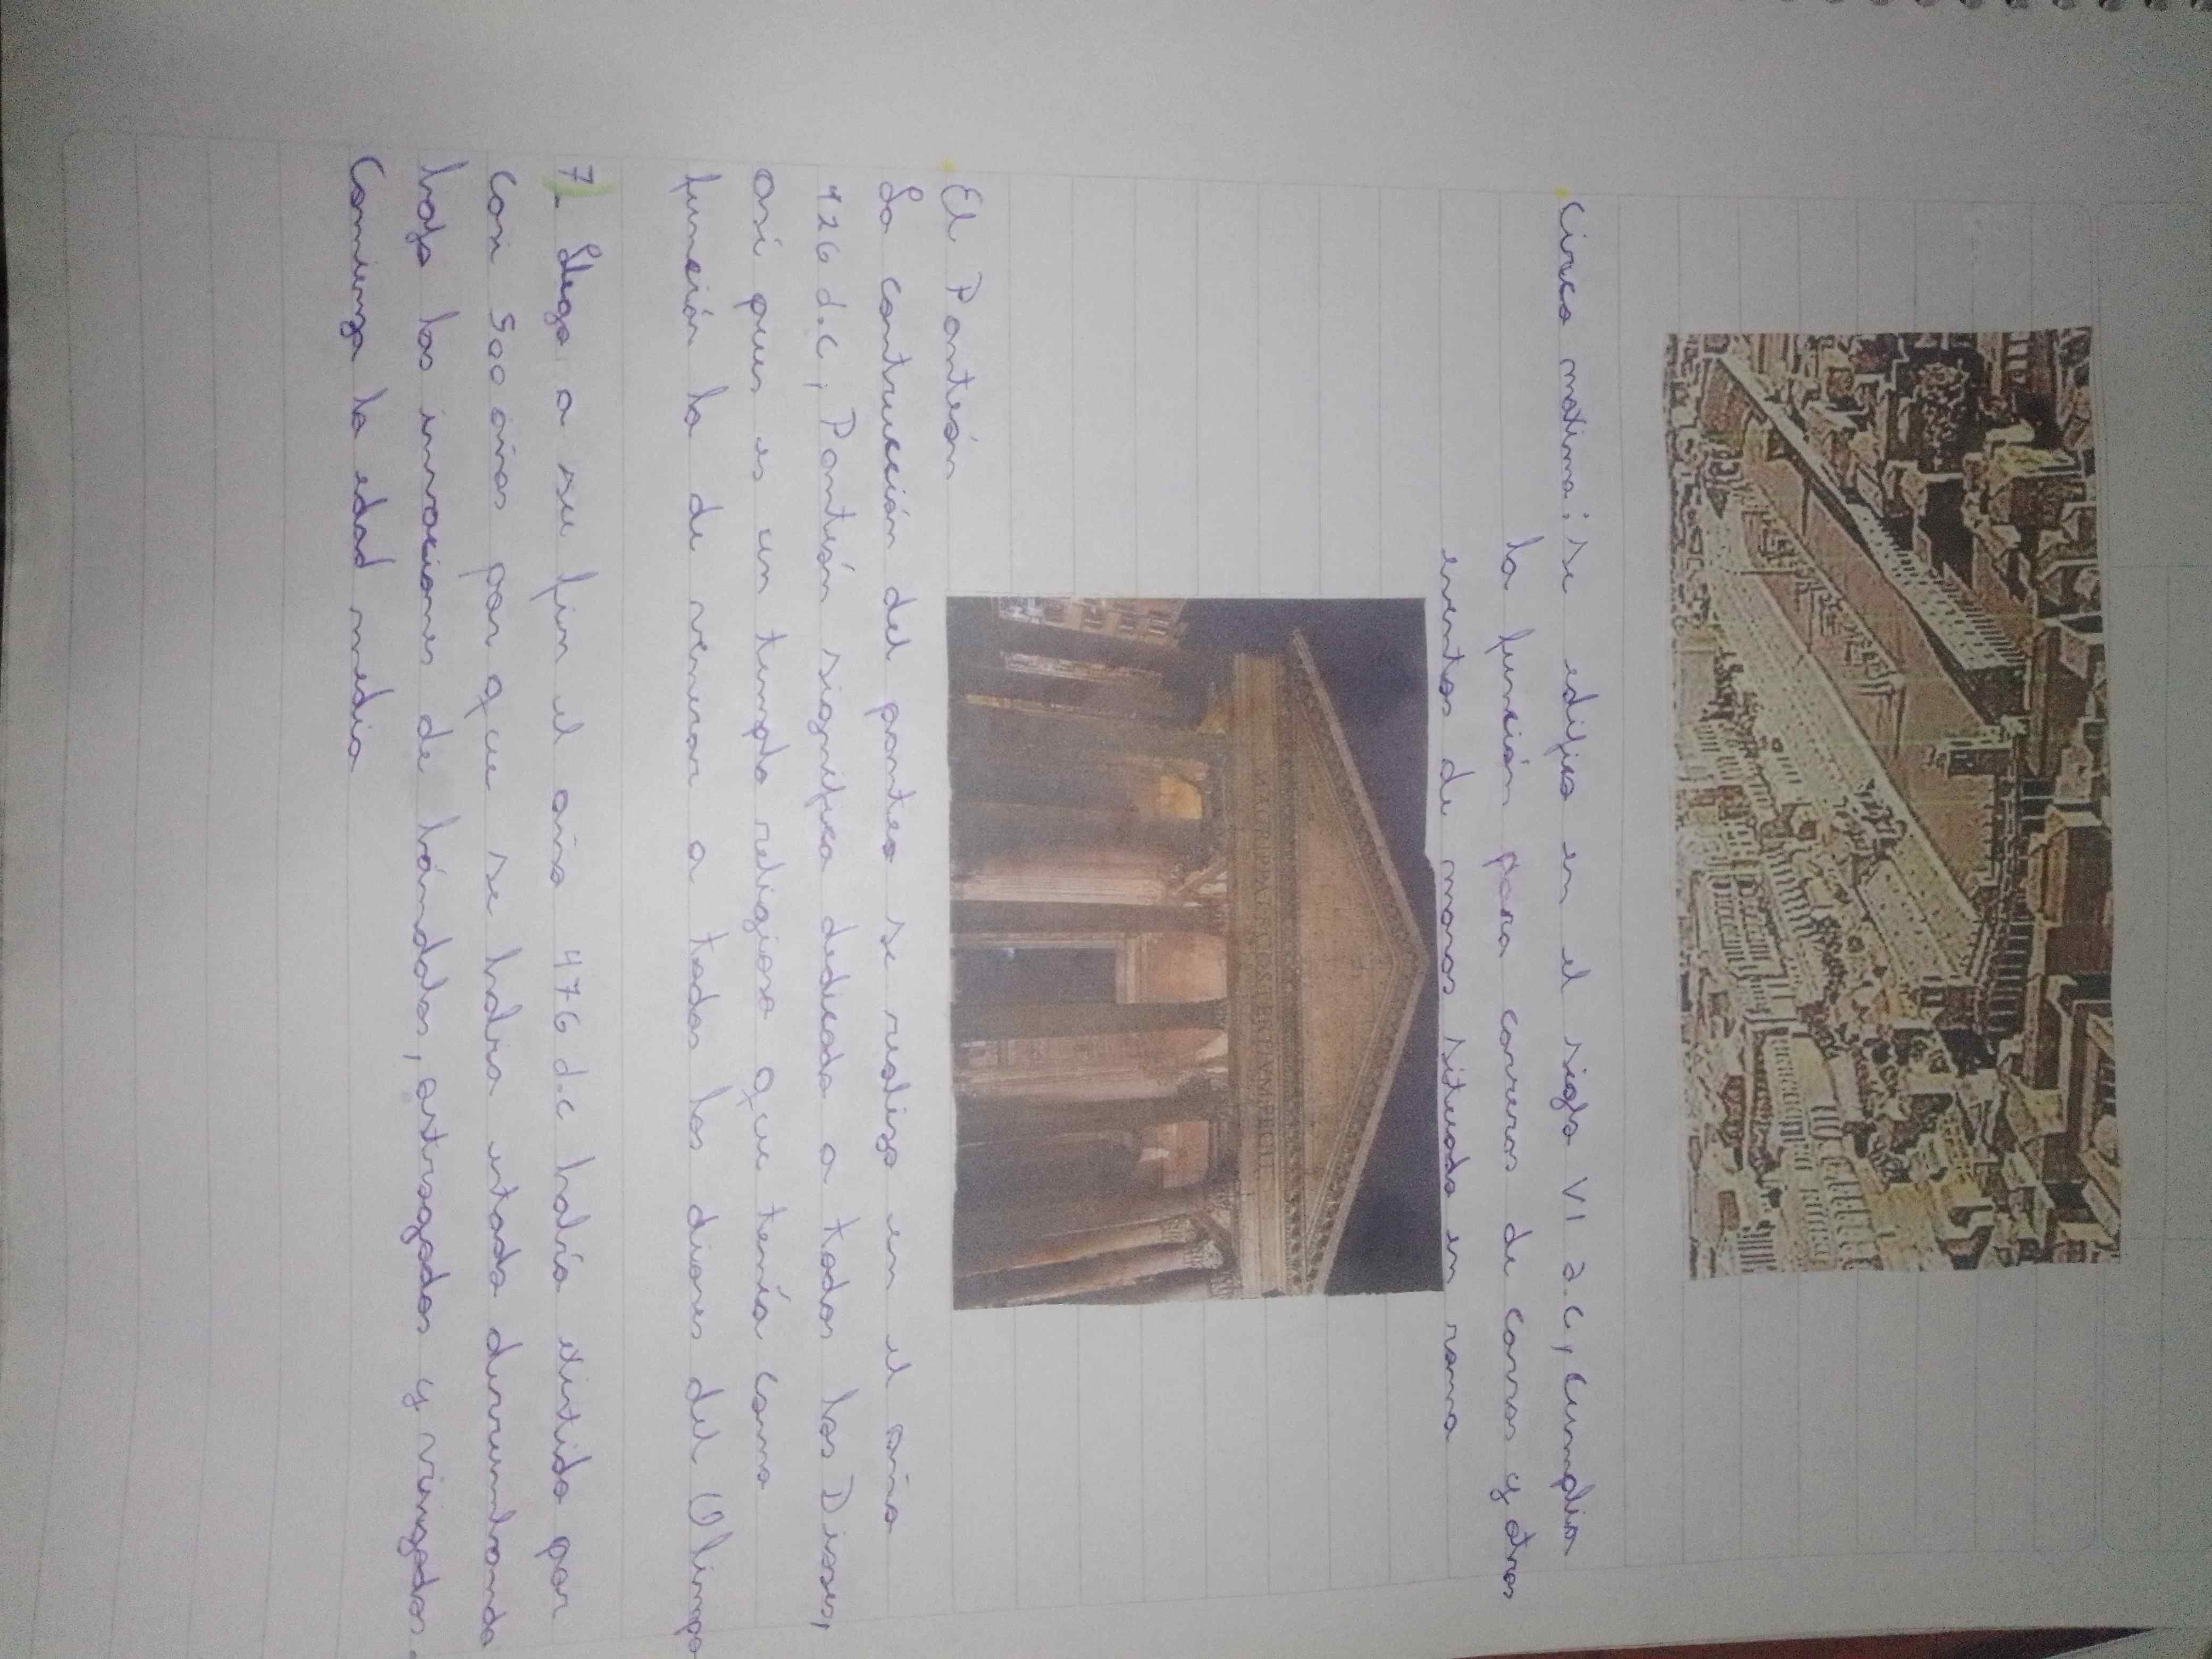 Circo maximo: se edifico en el siglo VI a.c, cumplia
la función para carreras de carros y otros
eventos de masas situado en roma
M·AGRIPPA·L·F·COS·TERTIVM·FECIT
El Panteón
La contrucción del panteo se realizo en el año
126 d.c, Panteón significa dedicado a todos los Dioses,
asi pues es un templo religioso que tenía como
función la de venerar a todos los dioses del Olimpo
7- Llego a su fin el año 476 d.c habría existido por
casi 500 años por que se habia estado derrumbando
bajo las invasiones de bándalos, ostrogodos y visigodos.
Comienza la edad media